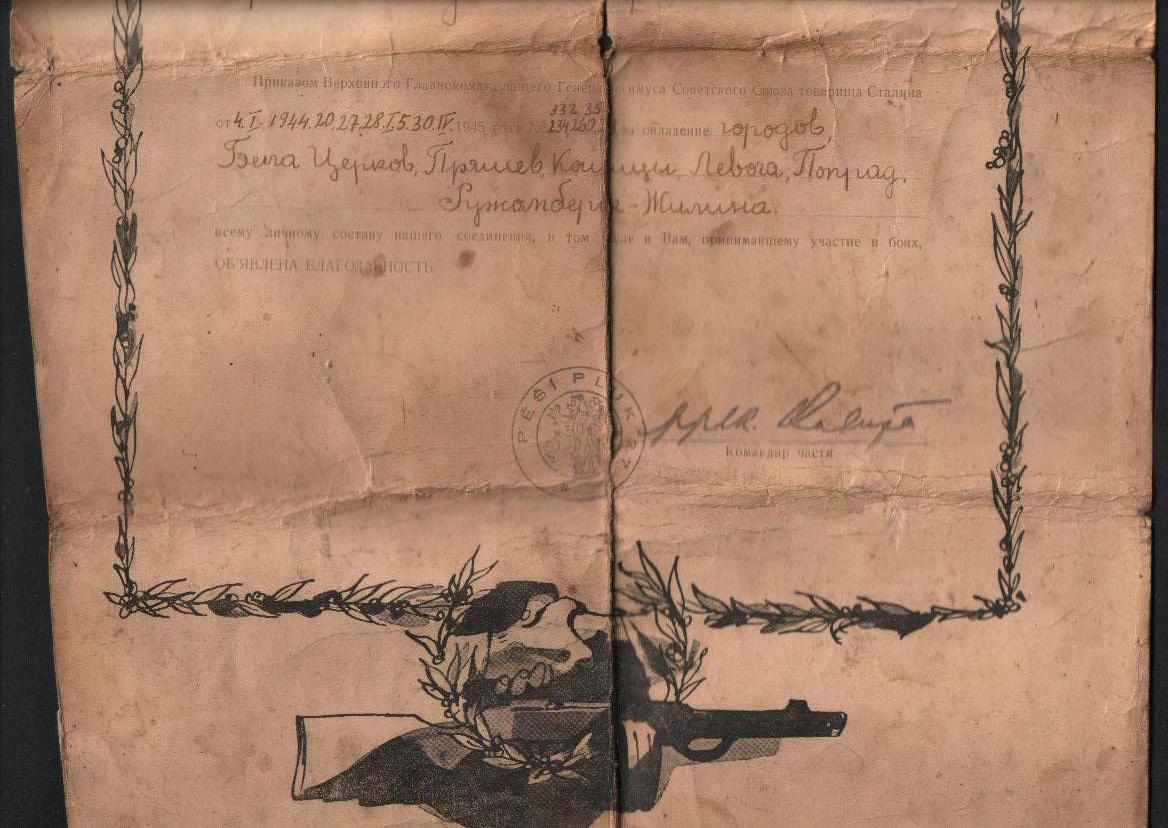 Приказом Верховного Главнокомандующего Генералиссимуса Советского Союза товарища Сталина
от 4.I. 1944. 20, 27, 28, I 5. 30. IV. 1945 года за овладение городов,
332 35
234 260
Бела Церков, Пряшев, Кошицы, Левоча, Попрад.
Ружомберок-Жилина.
всему личному составу нашего соединения, в том числе и Вам, принимавшему участие в боях,
ОБ'ЯВЛЕНА БЛАГОДАРНОСТЬ
PĚŠÍ PLUK
Командир части